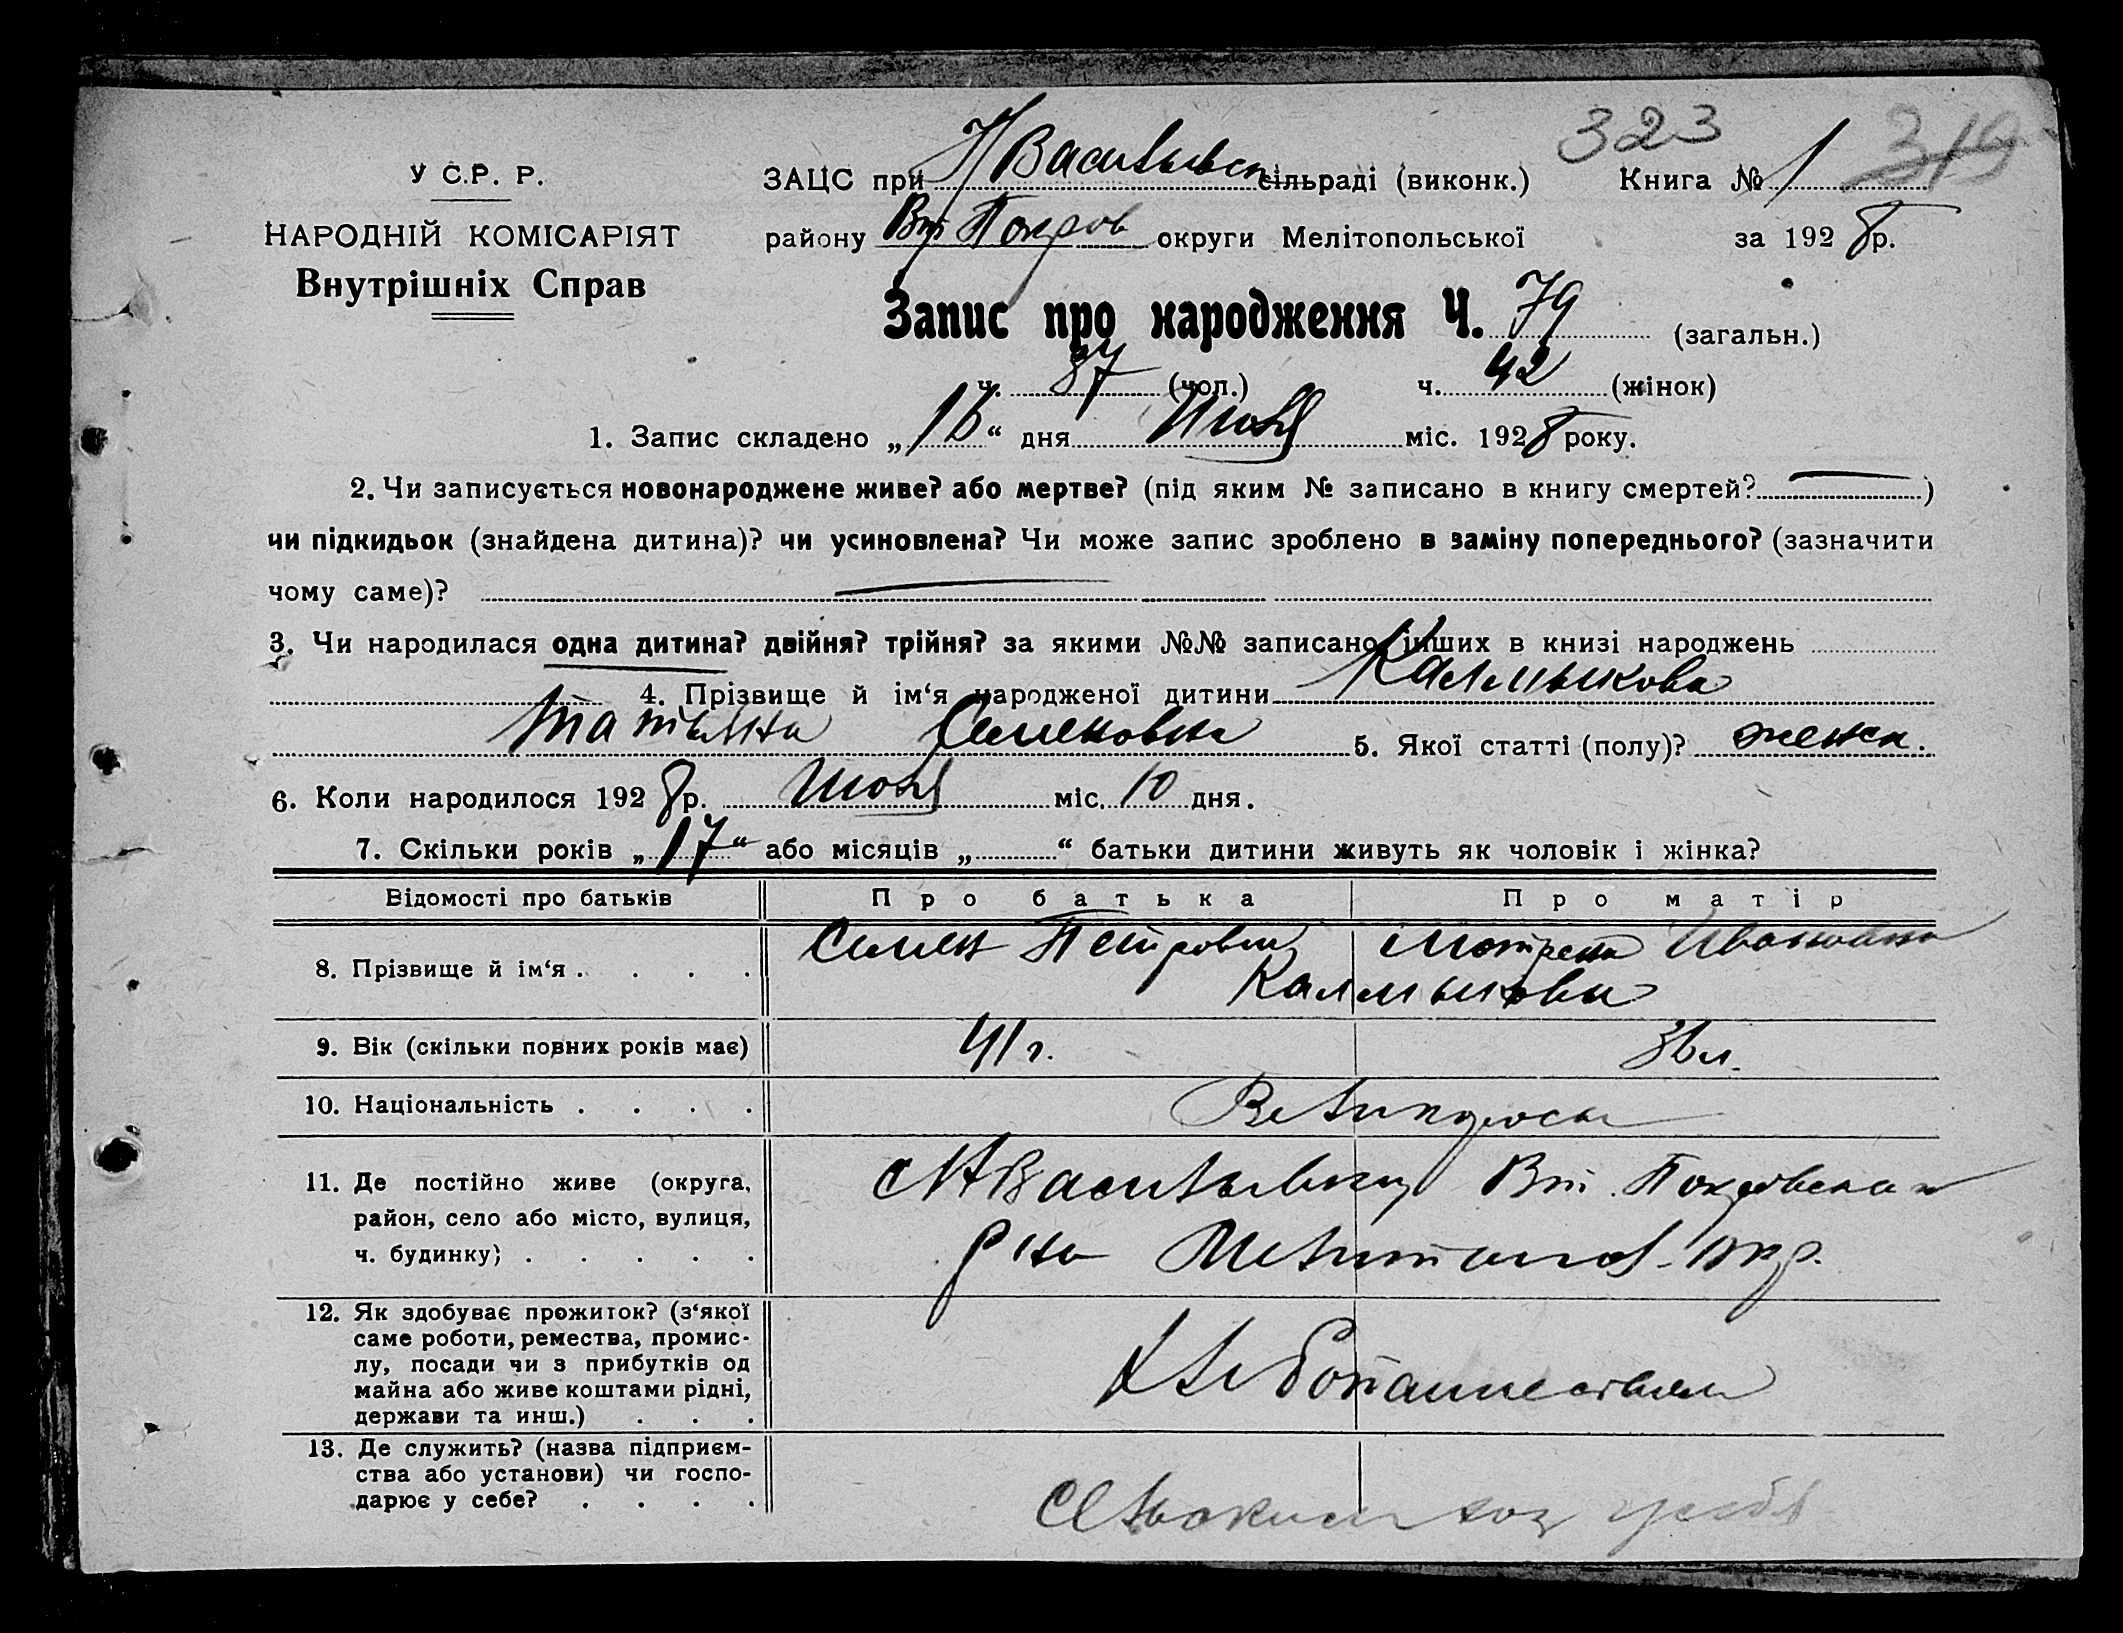 323 319
У С.Р. Р.
ЗАЦС при Н Васильевск сільраді (виконк.) Книга № 1
НАРОДНІЙ КОМІСАРІЯТ
району Вт Покров округи Мелітопольської за 1928р.
Внутрішніх Справ
Запис про народження Ч. 79 (загальн.)
ч. 37 (чол.) ч. 42 (жінок)
1. Запис складено „16“ дня Июня міс. 1928 року.
2. Чи записується новонароджене живе? або мертве? (під яким № записано в книгу смертей? )
чи підкидьок (знайдена дитина)? чи усиновлена? Чи може запис зроблено в заміну попереднього? (зазначити
чому саме)?
3. Чи народилася одна дитина? двійня? трійня? за якими №№ записано інших в книзі народжень
4. Прізвище й ім‘я народженої дитини Калмыкова
Татьяна Семеновна 5. Якої статті (полу)? женск.
6. Коли народилося 1928р. Июня міс. 10 дня.
7. Скільки років „17“ або місяців „ “ батьки дитини живуть як чоловік і жінка?
Відомості про батьків Про батька Про матір
8. Прізвище й ім‘я . . . . Семен Петрович Мотрена Ивановна
Калмыковы
9. Вік (скільки повних років має) 41 г. 36 л.
10. Національність . . . . Великоросы
11. Де постійно живе (округа, район, село або місто, вулиця, ч. будинку) . . . . . с Н Васильевку Вт. Покровского
р на Мелитопол. окр.
12. Як здобуває прожиток? (з‘якої саме роботи, ремества, промислу, посади чи з прибутків од майна або живе коштами рідні, держави та инш.) . . . Хлебопашеством
13. Де служить? (назва підприємства або установи) чи господарює у себе? . . . . Сельским хоз у себя